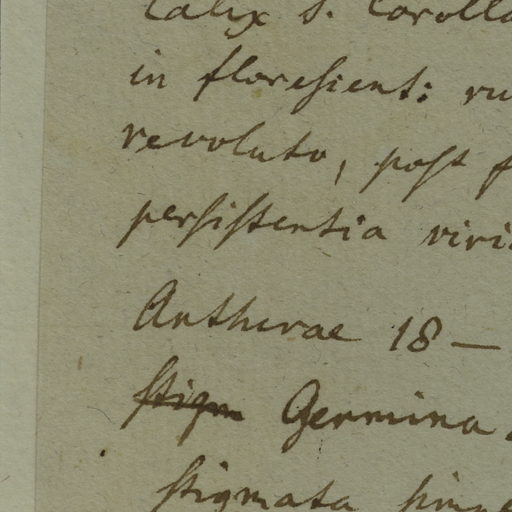 Calix s. Corolla
in floresient: ru
revoluto, post f
persistentia viri
Antherae 18 —
stigm Germina
stigmata simp